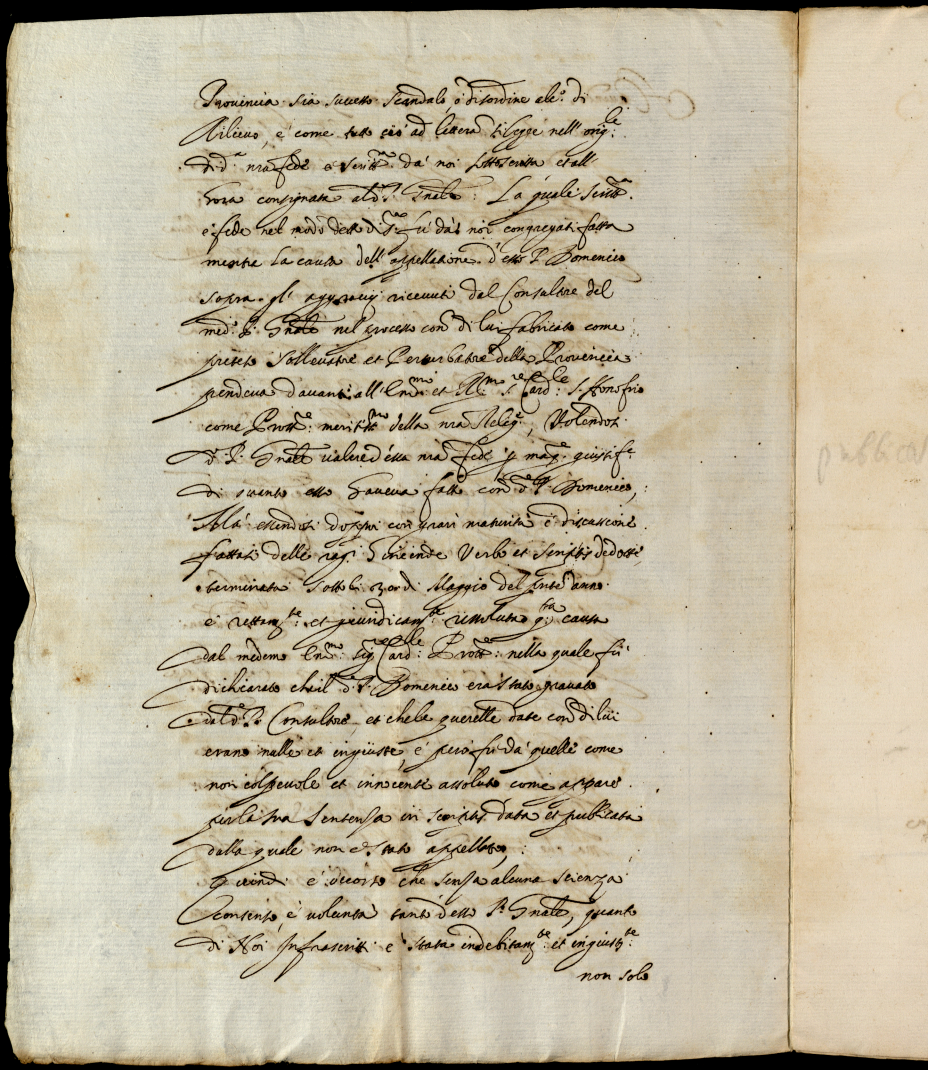 Provincia sia successo scandalo, ò disordine alc.º di
Rilievo, e come tutto ciò ad litteram si legge nell' orig.le
di d.a nra fede e scritt.ra da noi sottoscritta et all'
hora consignata al d.º P. Gnale: La quale scritt.ra
e fede nel modo detto di s.ª fù da noi congregati fatta
mentre la causa dell' appellatione d'esso P. Domenico
sopra gl' aggravij ricevuti dal Consultore del
med.º P. Gnale nel processo con.º di lui fabricato come
preteso sollevatore et Perturbatore della Provincia
pendeva davanti all' Em.mo et R.mo S.re Card.le S. Honofrio
come Prott.re meritiss.mo della nra Relig.e, Volendosi
d.º P. Gnale valere d'essa nra fede p mag.re giustif.e
di quanto esso haveva fatto con.º d.º P. Domenico,
Mà essendosi doppo con gran maturità e discussione
fattasi delle rag.i hinc inde Verbo et scriptis dedotte,
terminata sotto li di Maggio del pnte anno
e rettam.te et giuridicam.te rissoluta q.sta causa
dal medemo Em.mo Sig.re Card.le Prott.re nella quale fù
dichiarato che il d.º P. Domenico era stato gravato
dal d.º P. Consultore, et che le querelle date con.º di lui
erano nulle et ingiuste, e però fù da quelle come
non colpevole et innocente assoluto come appare
per la sua sentenza in scriptis data et publicata
dalla quale non è stato appellato,
Quindi è occorso che senza alcuna scienza
consenso, e volontà tanto d'esso P. Gnale, quanto
di Noi Infrascritti è stata indebitam.te et ingiustm.te
non solo
publicat